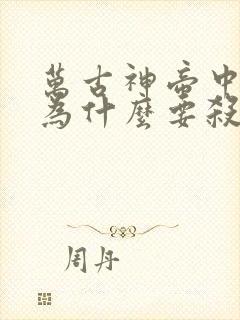 萬古神帝中
為什麼要殺
周丹